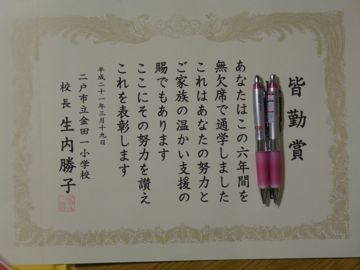 皆勤賞
あなたはこの六年間を
無欠席で通学しました
これはあなたの努力と
ご家族の温かい支援の
賜でもあります
ここにその努力を讃え
これを表彰します
平成二十一年三月十九日
二戸市立金田一小学校
校長 生内勝子